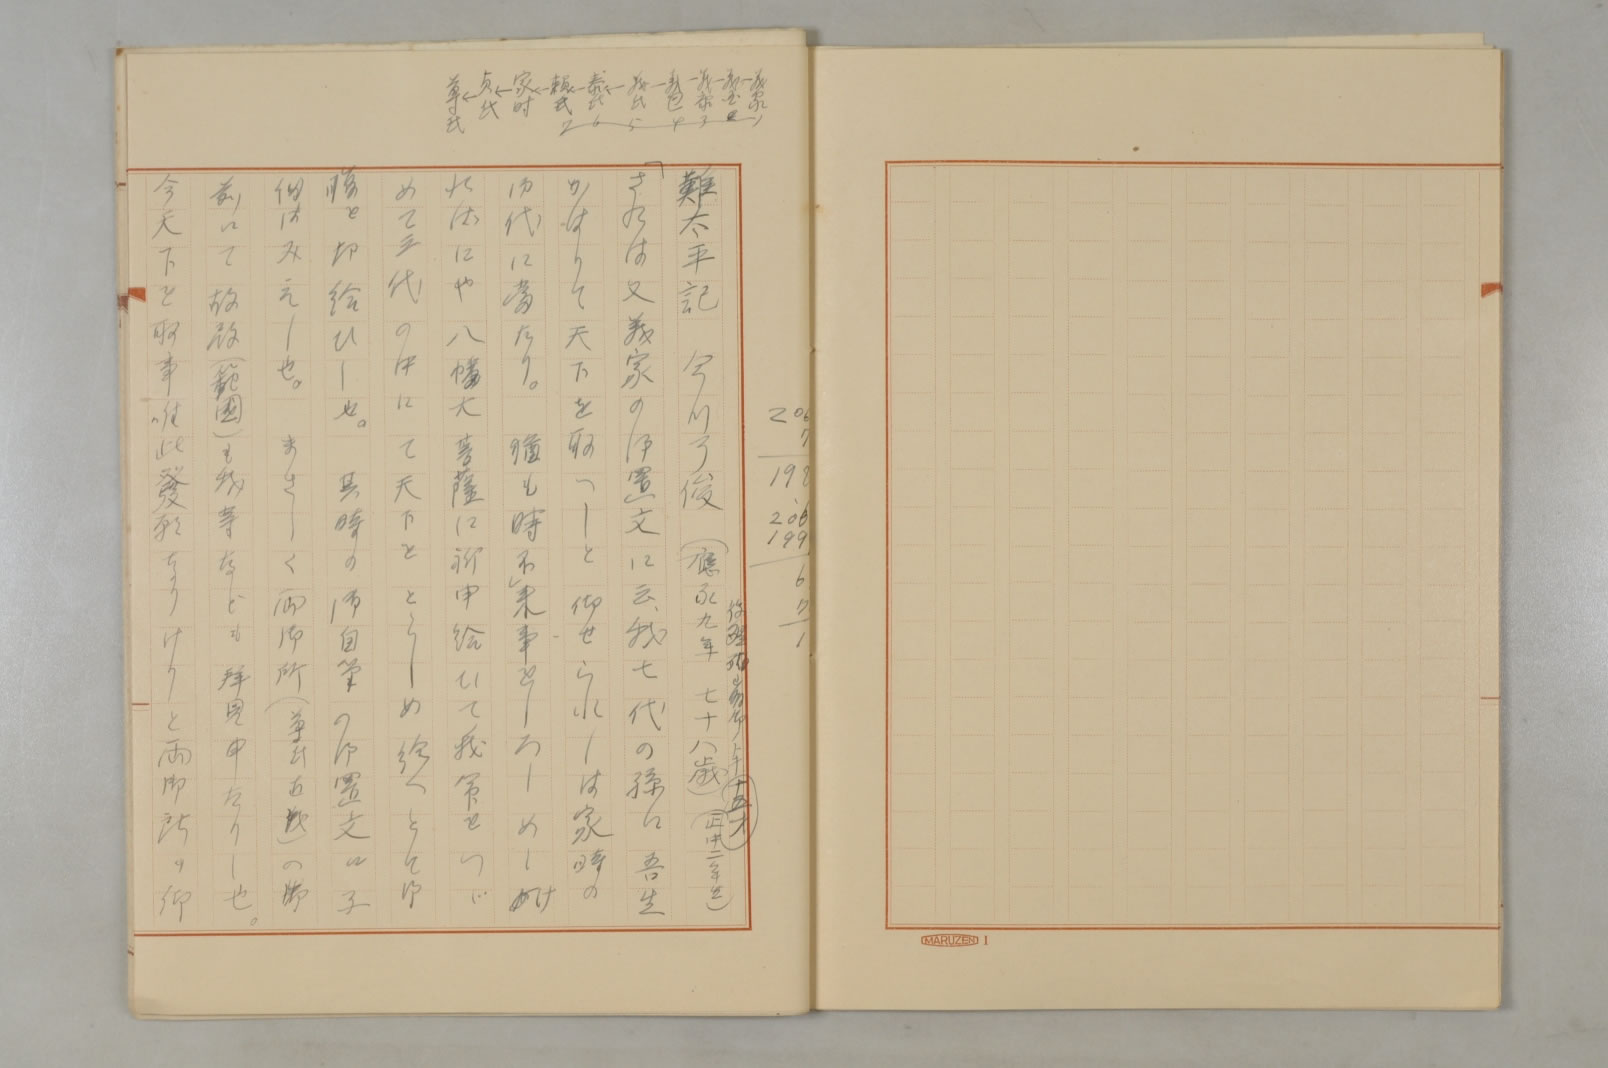 義家1
義国2
義康3
義包4
義氏5
泰氏6
頼氏7
家時
貞氏
尊氏
難太平記　今川了俊（應永九年　七十八歳）（正中二年生）
十五才
「されは又義家の御置文に云、我七代の孫に吾生
かはりて天下を取つしと仰せられしは家時の
御代に當たり。猶も時不来事をしろしめしけ
れはにや八幡大菩薩に祈申給ひて我命をつゞ
めて三代の中にて天下をとらしめ給へとて御
腹を切給ひし也。其時の御自筆の御置文に子
細はみえし也。まさしく両御所（尊氏直義）の御
前にて故殿（範國）も我等なども拝見申たりし也。
今天下を取事唯此發願なりけりと両御所も仰
206
7
199
206
199
6
7
1
MARUZEN 1